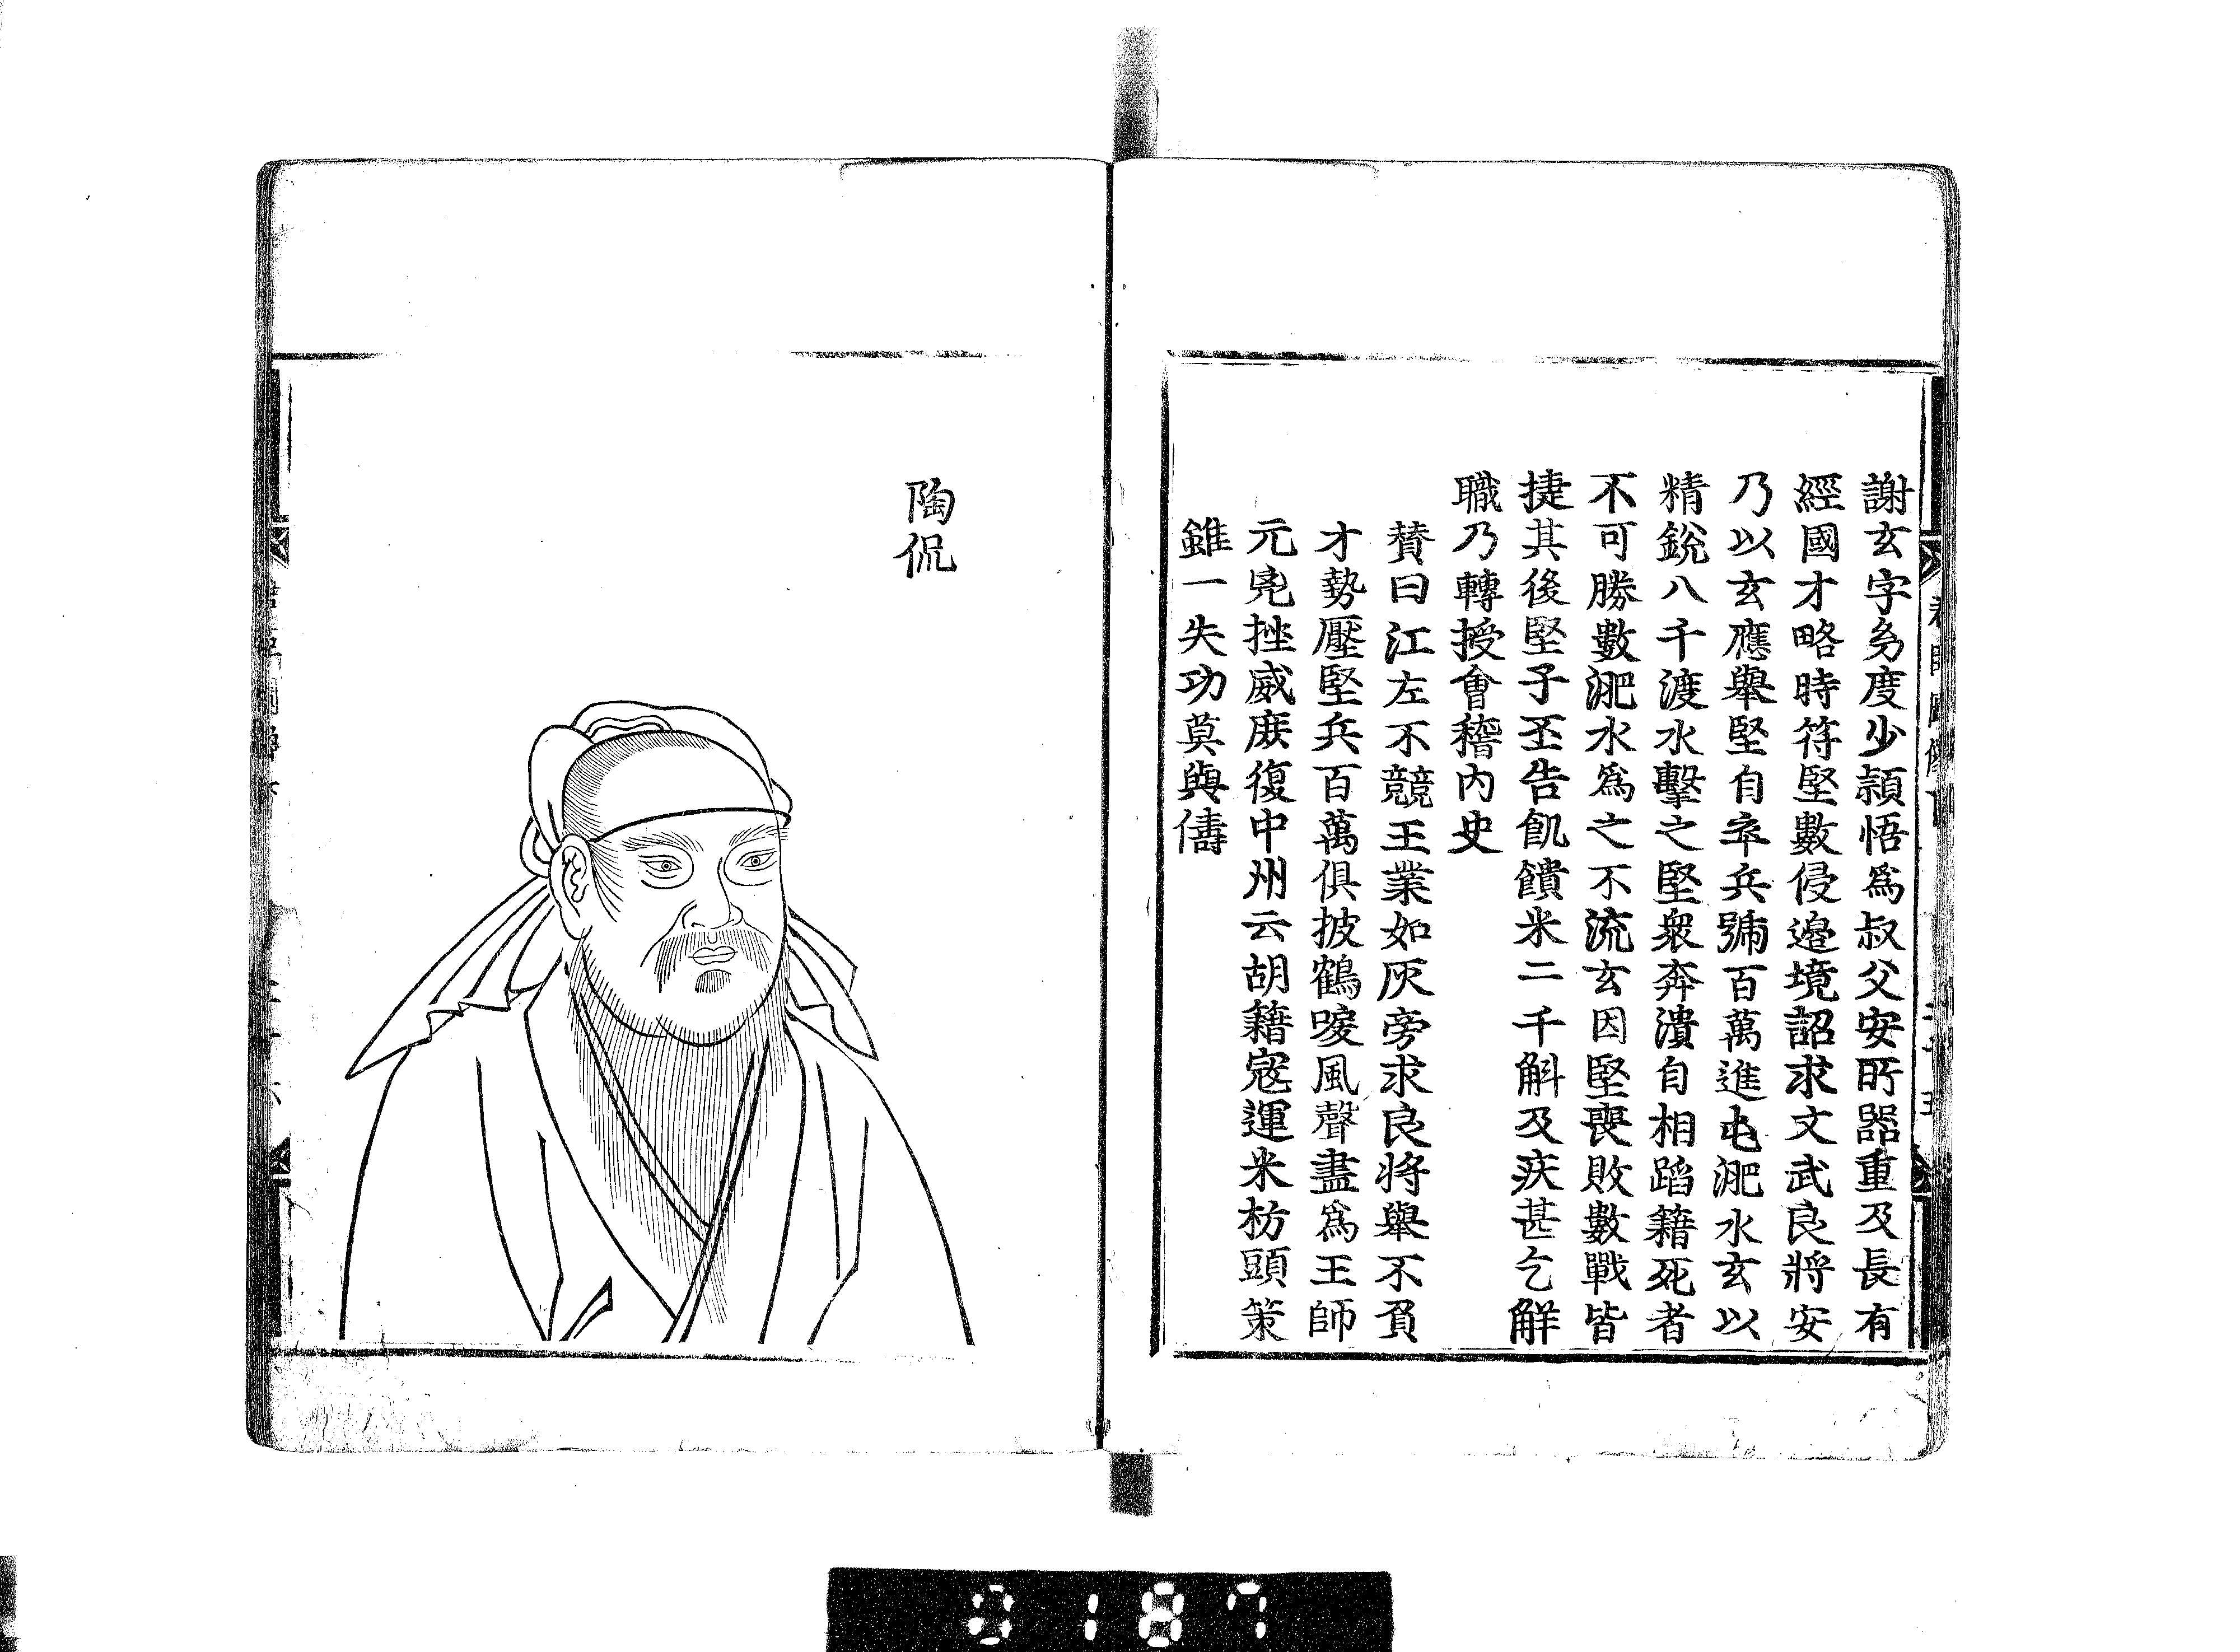 謝玄字㓜度少頴悟爲叔父安所器重及長有
經國才略時符堅數侵邉境詔求文武良將安
乃以玄應舉堅自卒兵號百萬進屯淝水玄以
精銳八千渡水擊之堅衆奔潰自相蹈籍死者
不可勝數淝水爲之不流玄因堅喪敗數戰皆
捷其後堅子丕告飢饋米二千斛及疾甚乞觧
職乃轉授會稽内史
賛曰江左不競王業如灰旁求良将舉不負
才勢壓堅兵百萬俱披鶴唳風聲盡爲王師
元兇挫威庻復中州云胡籍寇運米枋頭策
雖一失功莫與儔
陶侃
0187